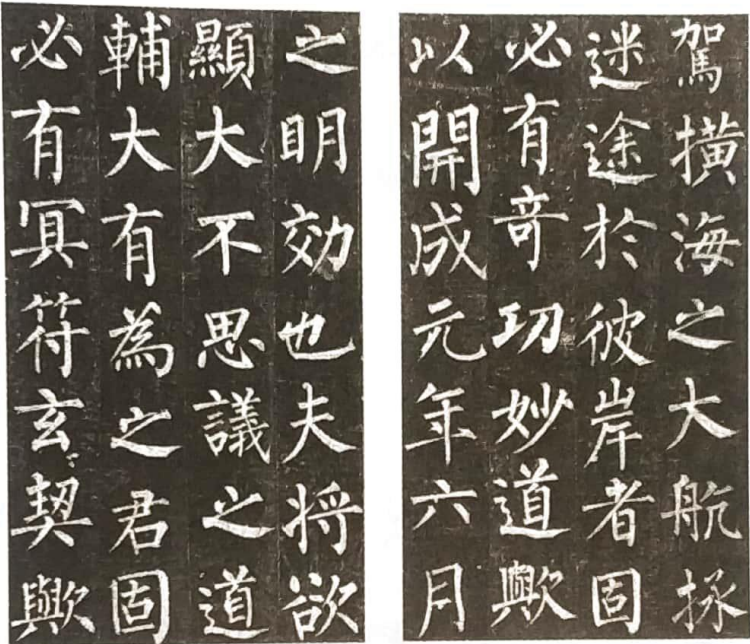 駕撗海之大航拯
迷途於彼岸者固
必有竒功妙道歟
以開成元年六月
之明効也夫将欲
顯大不思議之道
輔大有為之君固
必有冥符玄契歟